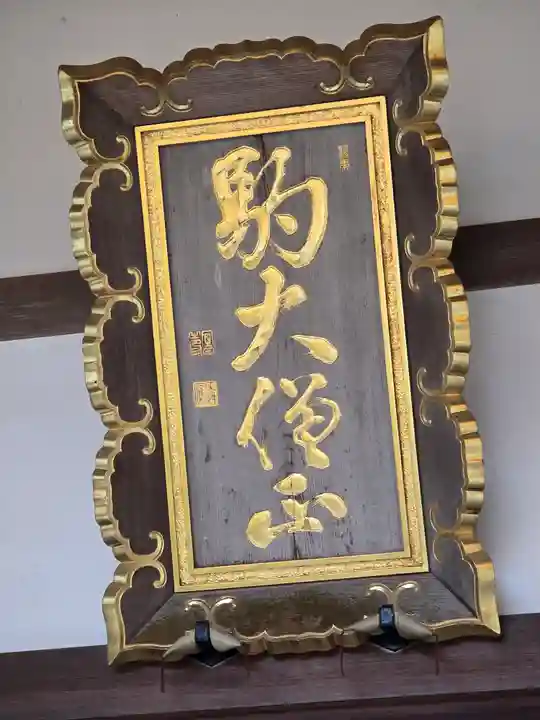 駒大僧正